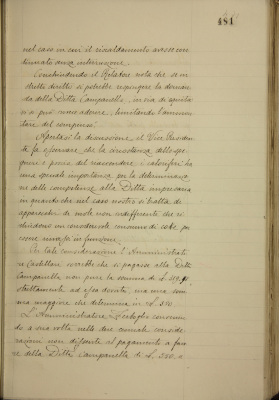 481
nel caso in cui il riscaldamento avesse con
tinuato senza interruzione.
Concludendo il Relatore nota che se in
diritto stretto si potrebbe respingere la doman
da della Ditta Campanella, in via di equità
si può concedere, limitando l'ammon
tare del compenso.
Apertasi la discussione, il Vice Presiden
te fa osservare che la circostanza dello spe
gnere e poscia del riaccendere i caloriferi ha
una speciale importanza per la determinazio
ne delle competenze alla Ditta impresaria
in quanto che nel caso nostro si tratta di
apparecchi di mole non indifferente che ri
chiedono un considerevole consumo di coke per
essere messi in funzione.
Per tali considerazioni l'Amministrato
re Castellari vorrebbe che si pagasse alla Ditta
Campanella non pure la somma di L.
strettamente ad essa dovuta, ma una som
ma maggiore che determina in L. 350.
L'Amministratore consenten
do a sua volta nelle due considera
zioni non disposte al pagamento a favo
re della Ditta Campanella di L.